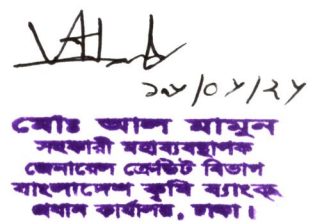 মোঃ আল মামুন
সহকারী মহাব্যবস্থাপক
জেনারেল ক্রেডিট বিভাগ
বাংলাদেশ কৃষি ব্যাংক
প্রধান কার্যালয়, ঢাকা।